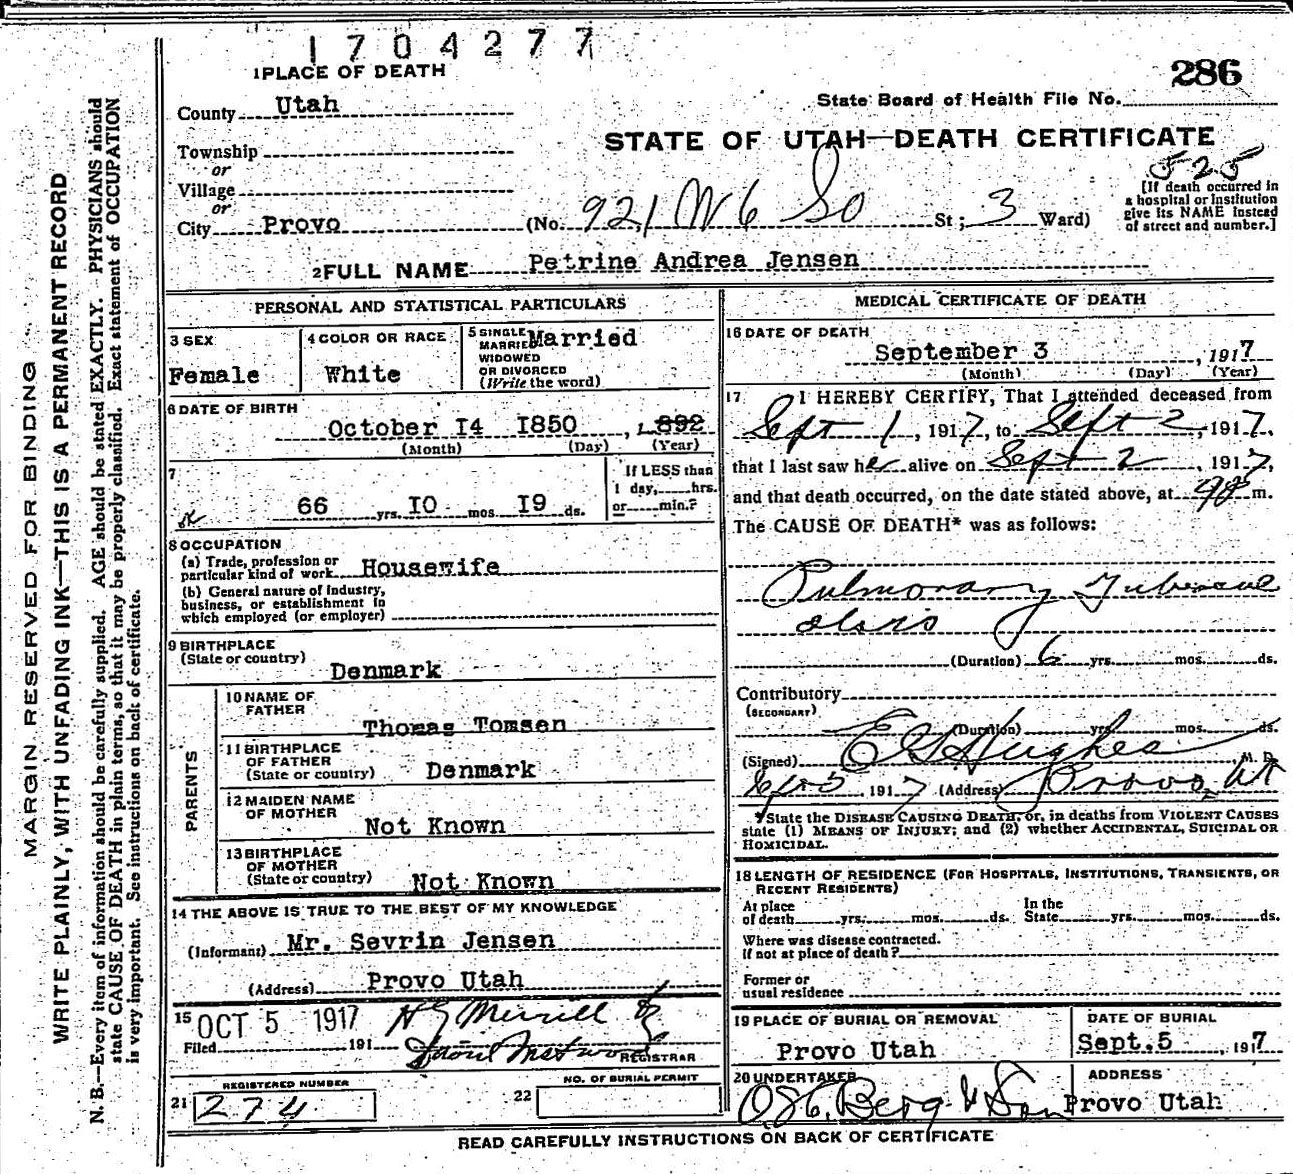 1704277
286
1 PLACE OF DEATH
State Board of Health File No.
County Utah
STATE OF UTAH—DEATH CERTIFICATE
Township
or
Village
or
City Provo
(No. 921 W 6 So St; 3 Ward)
525
[If death occurred in
a hospital or institution
give its NAME instead
of street and number.]
2 FULL NAME Petrine Andrea Jensen
PERSONAL AND STATISTICAL PARTICULARS
3 SEX
Female
4 COLOR OR RACE
White
5 SINGLE
MARRIED
WIDOWED
OR DIVORCED
(Write the word)
Married
6 DATE OF BIRTH
October I4 I850 , 1892
(Month) (Day) (Year)
7
66 yrs. IO mos. I9 ds.
If LESS than
1 day, hrs.
or min.?
8 OCCUPATION
(a) Trade, profession or
particular kind of work Housewife
(b) General nature of industry,
business, or establishment in
which employed (or employer)
9 BIRTHPLACE
(State or country)
Denmark
PARENTS
10 NAME OF
FATHER
Thomas Tomsen
11 BIRTHPLACE
OF FATHER
(State or country) Denmark
12 MAIDEN NAME
OF MOTHER
Not Known
13 BIRTHPLACE
OF MOTHER
(State or country) Not Known
14 THE ABOVE IS TRUE TO THE BEST OF MY KNOWLEDGE
(Informant) Mr. Sevrin Jensen
(Address) Provo Utah
15 OCT 5 1917
Filed 191
H G Merrill
REGISTRAR
REGISTERED NUMBER
21 274
NO. OF BURIAL PERMIT
22
MEDICAL CERTIFICATE OF DEATH
16 DATE OF DEATH
September 3 , 1917
(Month) (Day) (Year)
17 I HEREBY CERTIFY, That I attended deceased from
Sept 1, 1917, to Sept 2, 1917,
that I last saw her alive on Sept 2, 1917,
and that death occurred, on the date stated above, at m.
The CAUSE OF DEATH* was as follows:
Pulmonary Tubercul
olsis
(Duration) 6 yrs. mos. ds.
Contributory
(SECONDARY)
(Duration) yrs. mos. ds.
(Signed) E G Hughes M. D.
Sept 5 1917 (Address) Provo, Ut
*State the DISEASE CAUSING DEATH, or, in deaths from VIOLENT CAUSES
state (1) MEANS OF INJURY; and (2) whether ACCIDENTAL, SUICIDAL OR
HOMICIDAL.
18 LENGTH OF RESIDENCE (FOR HOSPITALS, INSTITUTIONS, TRANSIENTS, OR
RECENT RESIDENTS)
At place
of death yrs. mos. ds.
In the
State yrs. mos. ds.
Where was disease contracted.
if not at place of death?
Former or
usual residence
19 PLACE OF BURIAL OR REMOVAL
Provo Utah
DATE OF BURIAL
Sept.5 , 1917
20 UNDERTAKER
Berg & Son
ADDRESS
Provo Utah
READ CAREFULLY INSTRUCTIONS ON BACK OF CERTIFICATE
MARGIN RESERVED FOR BINDING
WRITE PLAINLY, WITH UNFADING INK—THIS IS A PERMANENT RECORD
N. B.—Every item of information should be carefully supplied. AGE should be stated EXACTLY. PHYSICIANS should
state CAUSE OF DEATH in plain terms, so that it may be properly classified. Exact statement of OCCUPATION
is very important. See instructions on back of certificate.